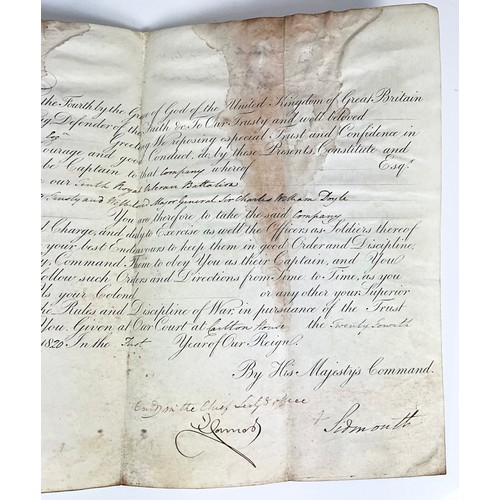 the Fourth by the Grace of God of the United Kingdom of Great Britain
Defender of the Faith &c To Our Trusty and well beloved
Esqr greeting We reposing especial Trust and Confidence in
Courage and good Conduct, do, by these Presents, Constitute and
be Captain to that Company whereof Esqr.
our Royal Veteran Battalion
Trusty and Well beloved Major General Sir Charles William Doyle
You are therefore to take the said Company
Charge, and duly to Exercise as well the Officers as Soldiers thereof
your best Endeavours to keep them in good Order and Discipline,
Command Them to obey You as their Captain, and You
follow such Orders and Directions from Time to Time, as you
Us your Colonel or any other your Superior
Rules and Discipline of War, in pursuance of the Trust
You. Given at Our Court at Carlton House the Twenty Fourth
1820 In the First Year of Our Reign.
By His Majestys Command.
the Chief Secys Office
Sidmouth